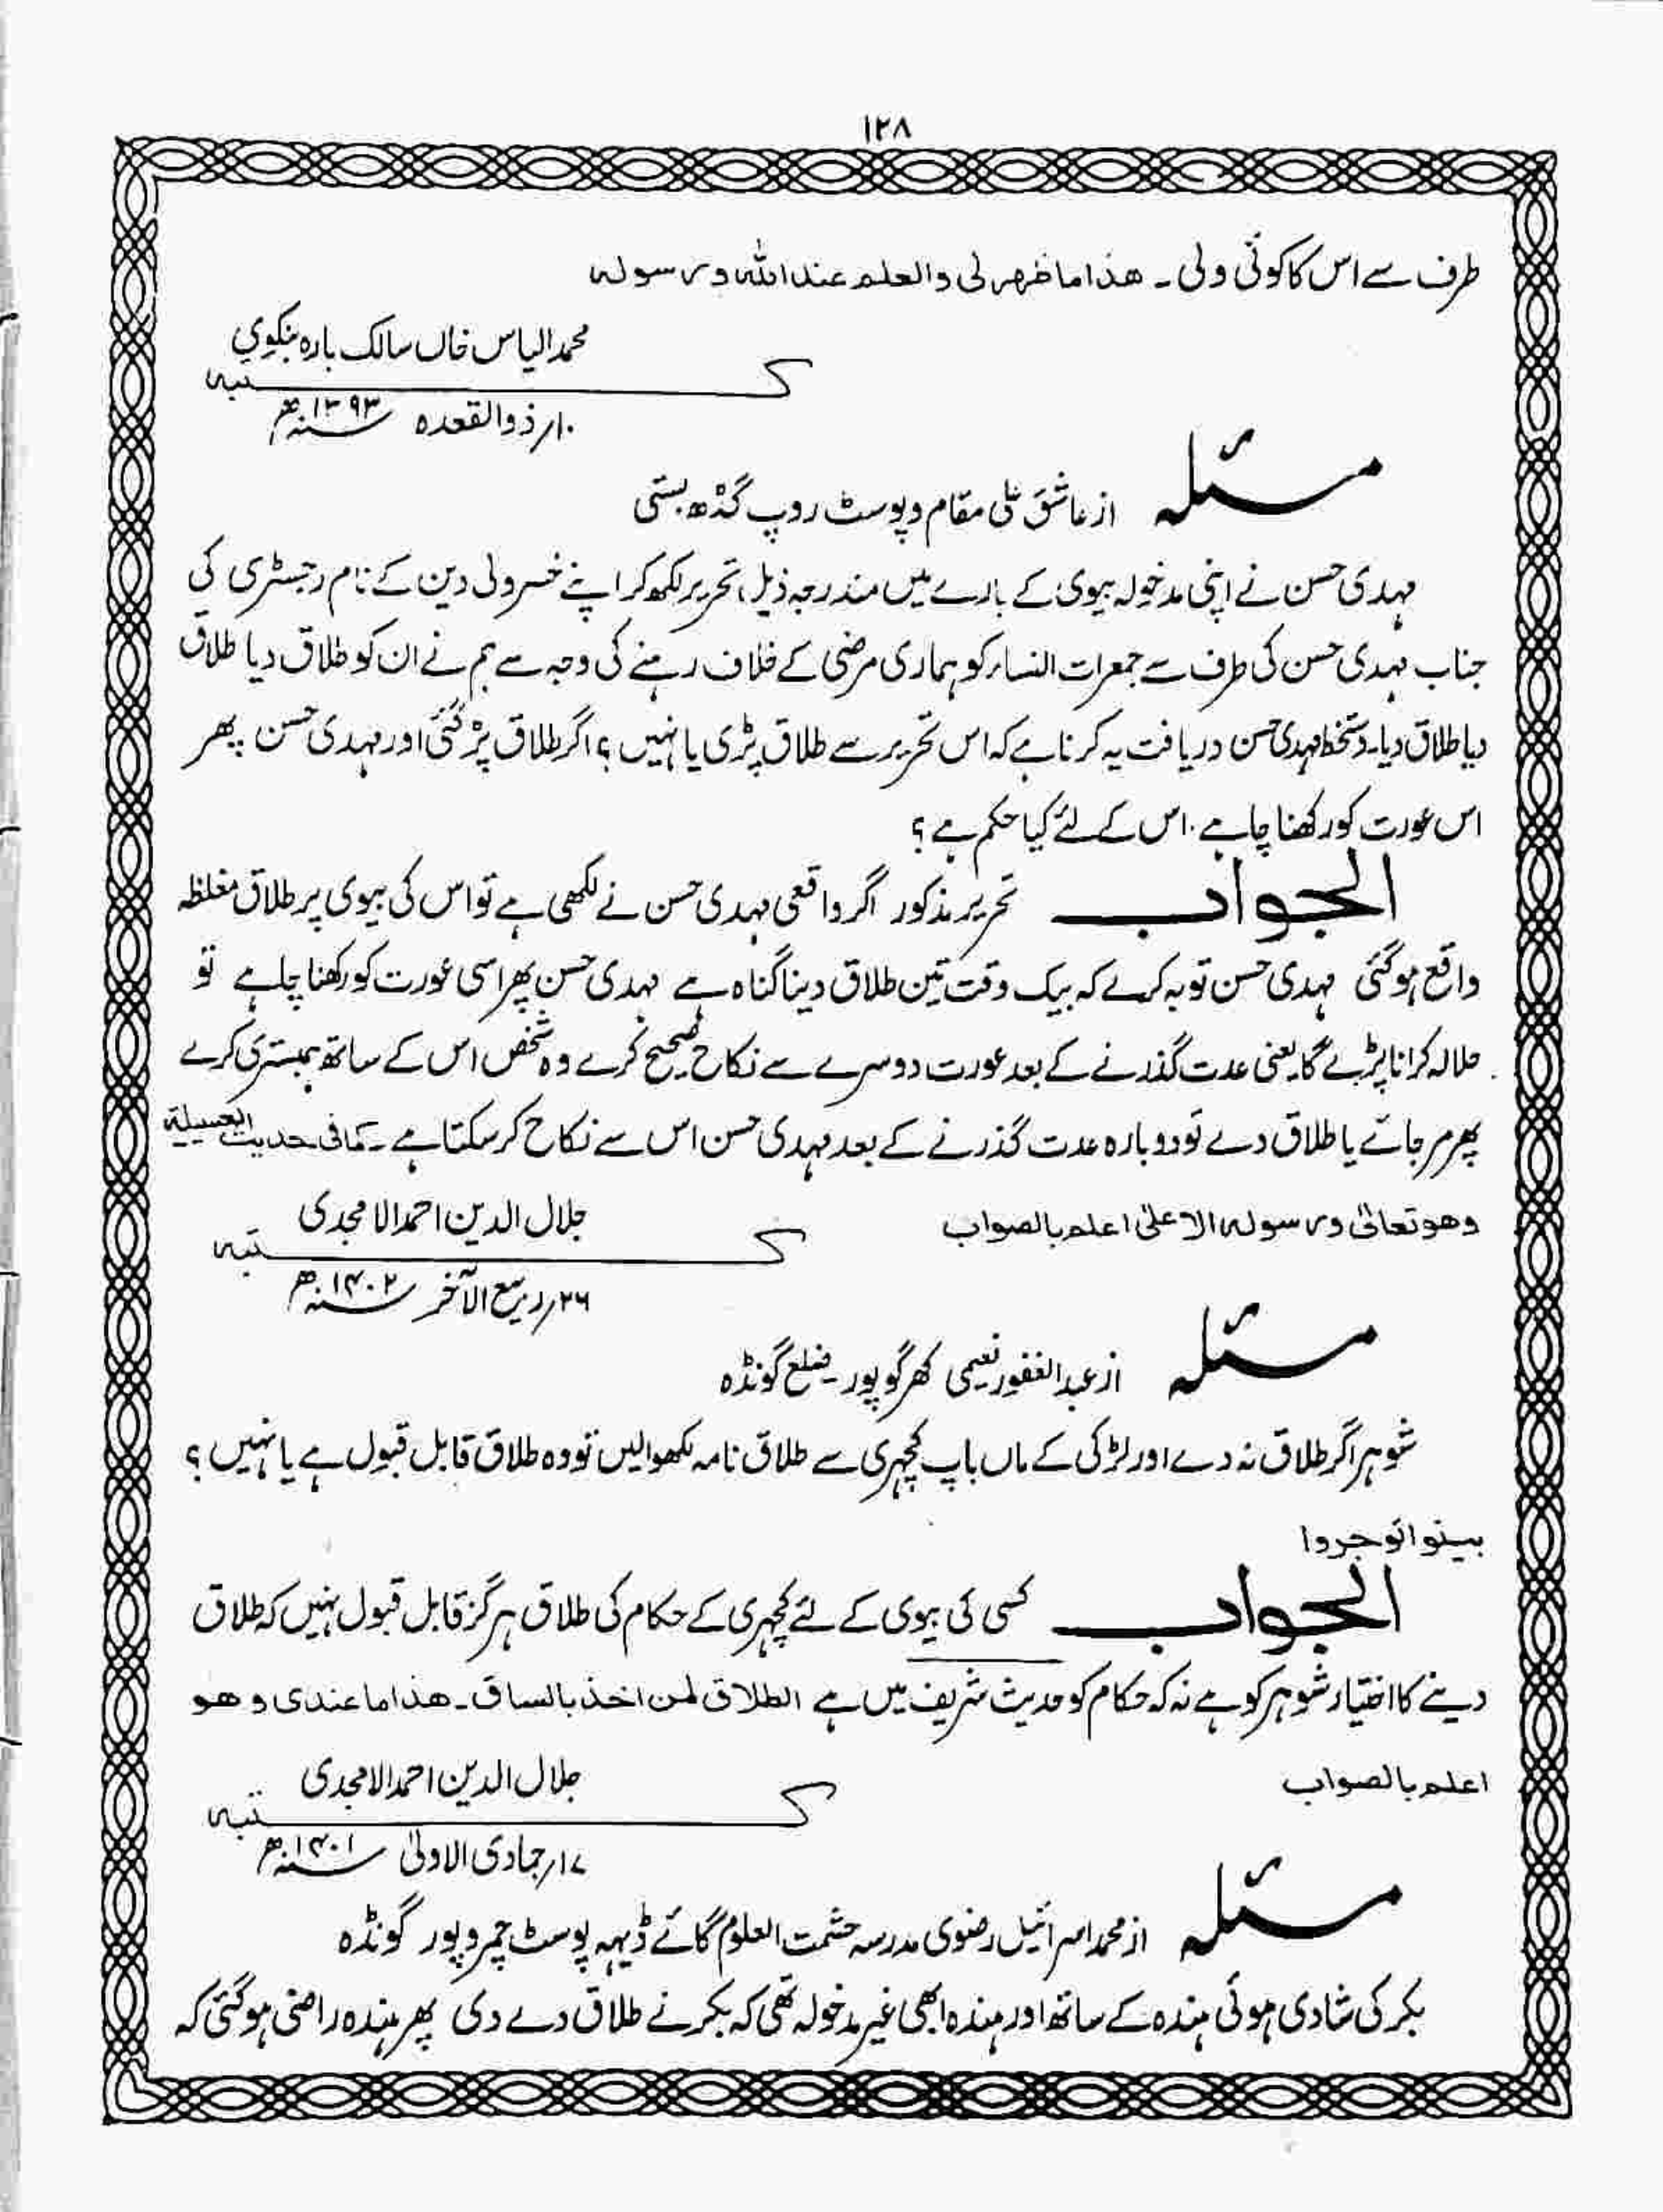 ۱۲۸
طرف سے اس کا کوئی ولی ۔ ھذا ما ظھر لی والعلم عند اللہ ورسولہ
محمد الیاس خاں سالک بارہ بنکوی
کتبہ
۱۰ر ذوالقعدہ سنہ ۱۳۹۳ھ
مسئلہ از عاشق علی مقام وپوسٹ روپ گڈھ بستی
مہدی حسن نے اپنی مدخولہ بیوی کے بارے میں مندرجہ ذیل، تحریر لکھ کر اپنے خسر ولی دین کے نام رجسٹری کی
جناب مہدی حسن کی طرف سے جمعرات النساء کو ہماری مرضی کے خلاف رہنے کی وجہ سے ہم نے ان کو طلاق دیا طلاق
دیا طلاق دیا۔ دستخط مہدی حسن دریافت یہ کرنا ہے کہ اس تحریر سے طلاق پڑی یا نہیں ؟ اگر طلاق پڑ گئی اور مہدی حسن پھر
اس عورت کو رکھنا چاہے ۔ اس کے لئے کیا حکم ہے ؟
الجواب تحریر مذکور اگر واقعی مہدی حسن نے لکھی ہے تو اس کی بیوی پر طلاق مغلظہ
واقع ہوگئی مہدی حسن توبہ کرے کہ بیک وقت تین طلاق دینا گناہ ہے مہدی حسن پھر اسی عورت کو رکھنا چاہے تو
حلالہ کرانا پڑے گا یعنی عدت گذرنے کے بعد عورت دوسرے سے نکاح صحیح کرے وہ شخص اس کے ساتھ ہمبستری کرے
پھر مر جائے یا طلاق دے تو دوبارہ عدت گذرنے کے بعد مہدی حسن اس سے نکاح کر سکتا ہے ۔ کما فی حدیث العسیلۃ
وھو تعالیٰ ورسولہ الاعلیٰ اعلم بالصواب
جلال الدین احمد الامجدی
کتبہ
۲۶ر ربیع الآخر سنہ ۱۴۰۲ھ
مسئلہ از عبد الغفور نعیمی کھرگوپور ۔ ضلع گونڈہ
شوہر اگر طلاق نہ دے اور لڑکی کے ماں باپ کچہری سے طلاق نامہ لکھوالیں تو وہ طلاق قابل قبول ہے یا نہیں ؟
بینوا توجروا
الجواب کسی کی بیوی کے لئے کچہری کے حکام کی طلاق ہرگز قابل قبول نہیں کہ طلاق
دینے کا اختیار شوہر کو ہے نہ کہ حکام کو حدیث شریف میں ہے الطلاق لمن اخذ بالساق ۔ ھذا ما عندی وھو
اعلم بالصواب
جلال الدین احمد الامجدی
کتبہ
۱۷ر جمادی الاولیٰ سنہ ۱۴۰۱ھ
مسئلہ از محمد اسرائیل رضوی مدرسہ حشمت العلوم گائے ڈیہہ پوسٹ چمروپور گونڈہ
بکر کی شادی ہوئی ہندہ کے ساتھ اور ہندہ ابھی غیر مدخولہ تھی کہ بکر نے طلاق دے دی پھر ہندہ راضی ہوگئی کہ